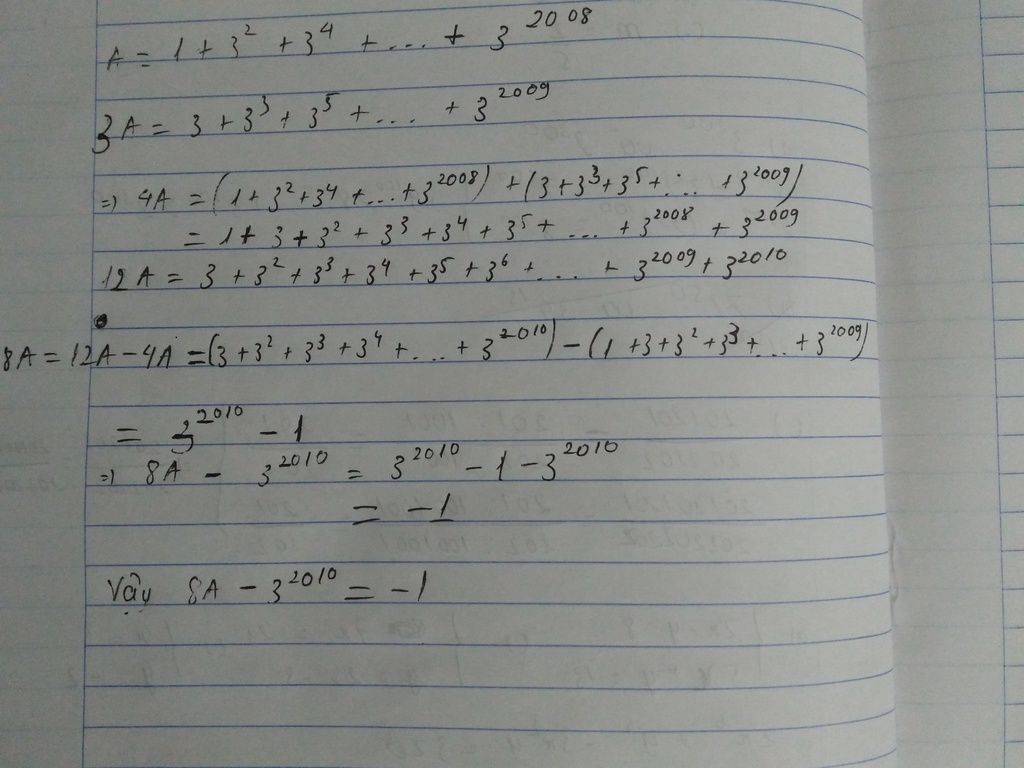 A = 1 + 3² + 3⁴ + ... + 3²⁰⁰⁸
3A = 3 + 3³ + 3⁵ + ... + 3²⁰⁰⁹
=) 4A = (1 + 3² + 3⁴ + ... + 3²⁰⁰⁸) + (3 + 3³ + 3⁵ + ... + 3²⁰⁰⁹)
= 1 + 3 + 3² + 3³ + 3⁴ + 3⁵ + ... + 3²⁰⁰⁸ + 3²⁰⁰⁹
12A = 3 + 3² + 3³ + 3⁴ + 3⁵ + 3⁶ + ... + 3²⁰⁰⁹ + 3²⁰¹⁰
8A = 12A - 4A = (3 + 3² + 3³ + 3⁴ + ... + 3²⁰¹⁰) - (1 + 3 + 3² + 3³ + ... + 3²⁰⁰⁹)
= 3²⁰¹⁰ - 1
=) 8A - 3²⁰¹⁰ = 3²⁰¹⁰ - 1 - 3²⁰¹⁰
= -1
Vậy 8A - 3²⁰¹⁰ = -1